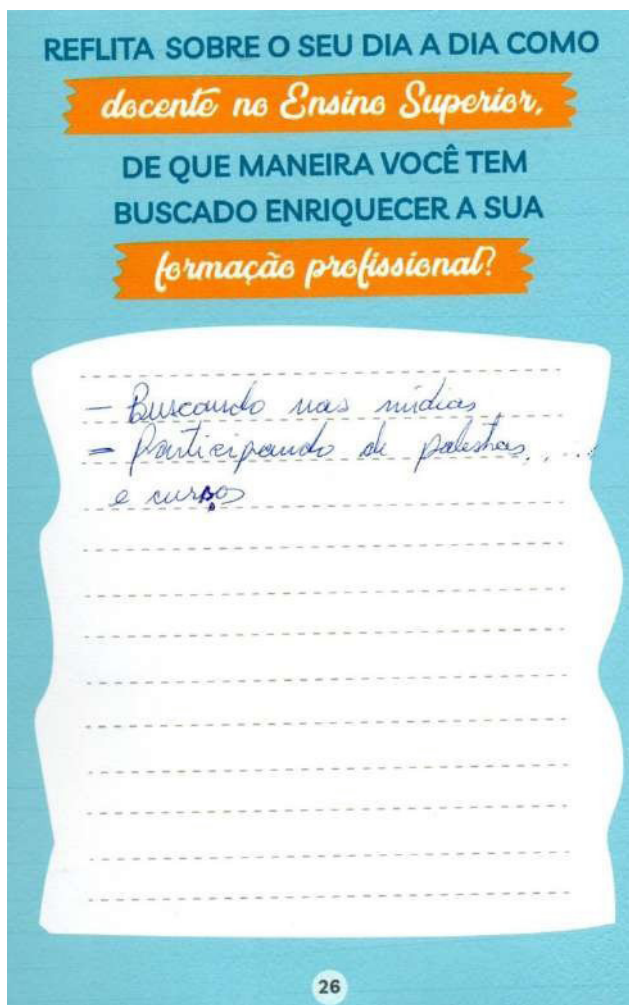 REFLITA SOBRE O SEU DIA A DIA COMO
docente no Ensino Superior,
DE QUE MANEIRA VOCÊ TEM
BUSCADO ENRIQUECER A SUA
formação profissional?
- Buscando nas mídias
- Participando de palestras, ...
e cursos
26